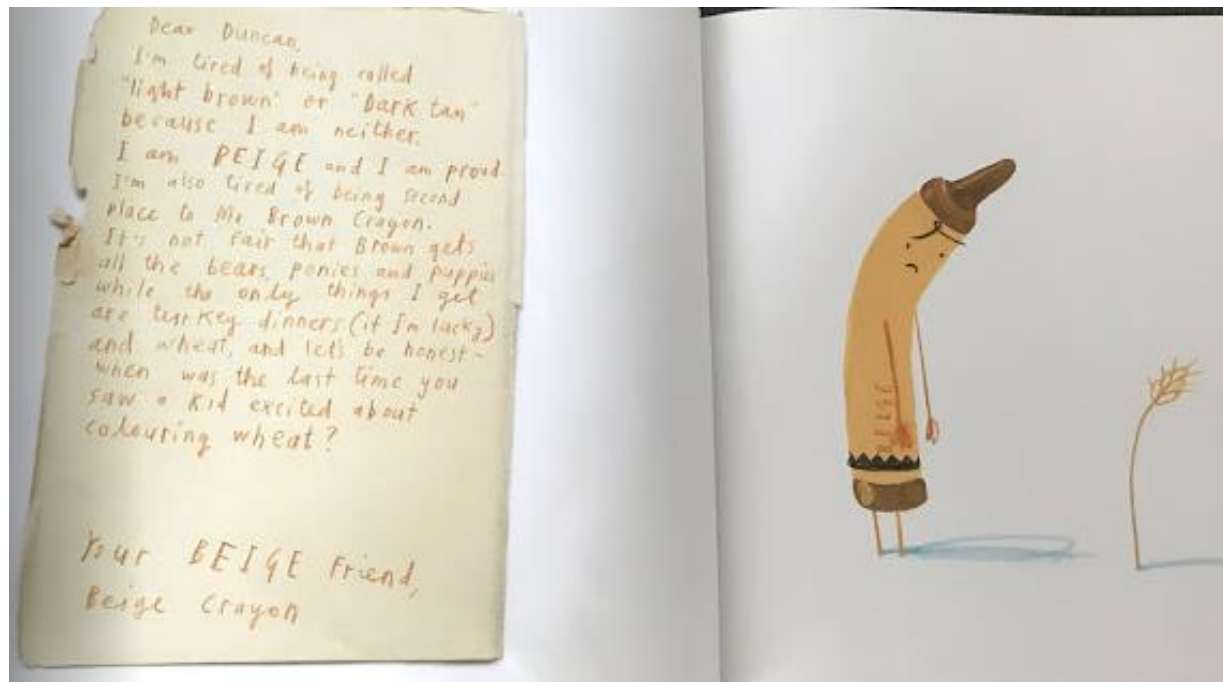 Dear Duncan,
I'm tired of being called
"light brown" or "Dark tan"
because I am neither.
I am BEIGE and I am proud.
I'm also tired of being second
place to Mr Brown Crayon.
It's not fair that Brown gets
all the bears, ponies and puppies
while the only things I get
are turkey dinners (if I'm lucky)
and wheat, and let's be honest-
when was the last time you
saw a kid excited about
colouring wheat?
Your BEIGE friend,
Beige Crayon
BEIGE